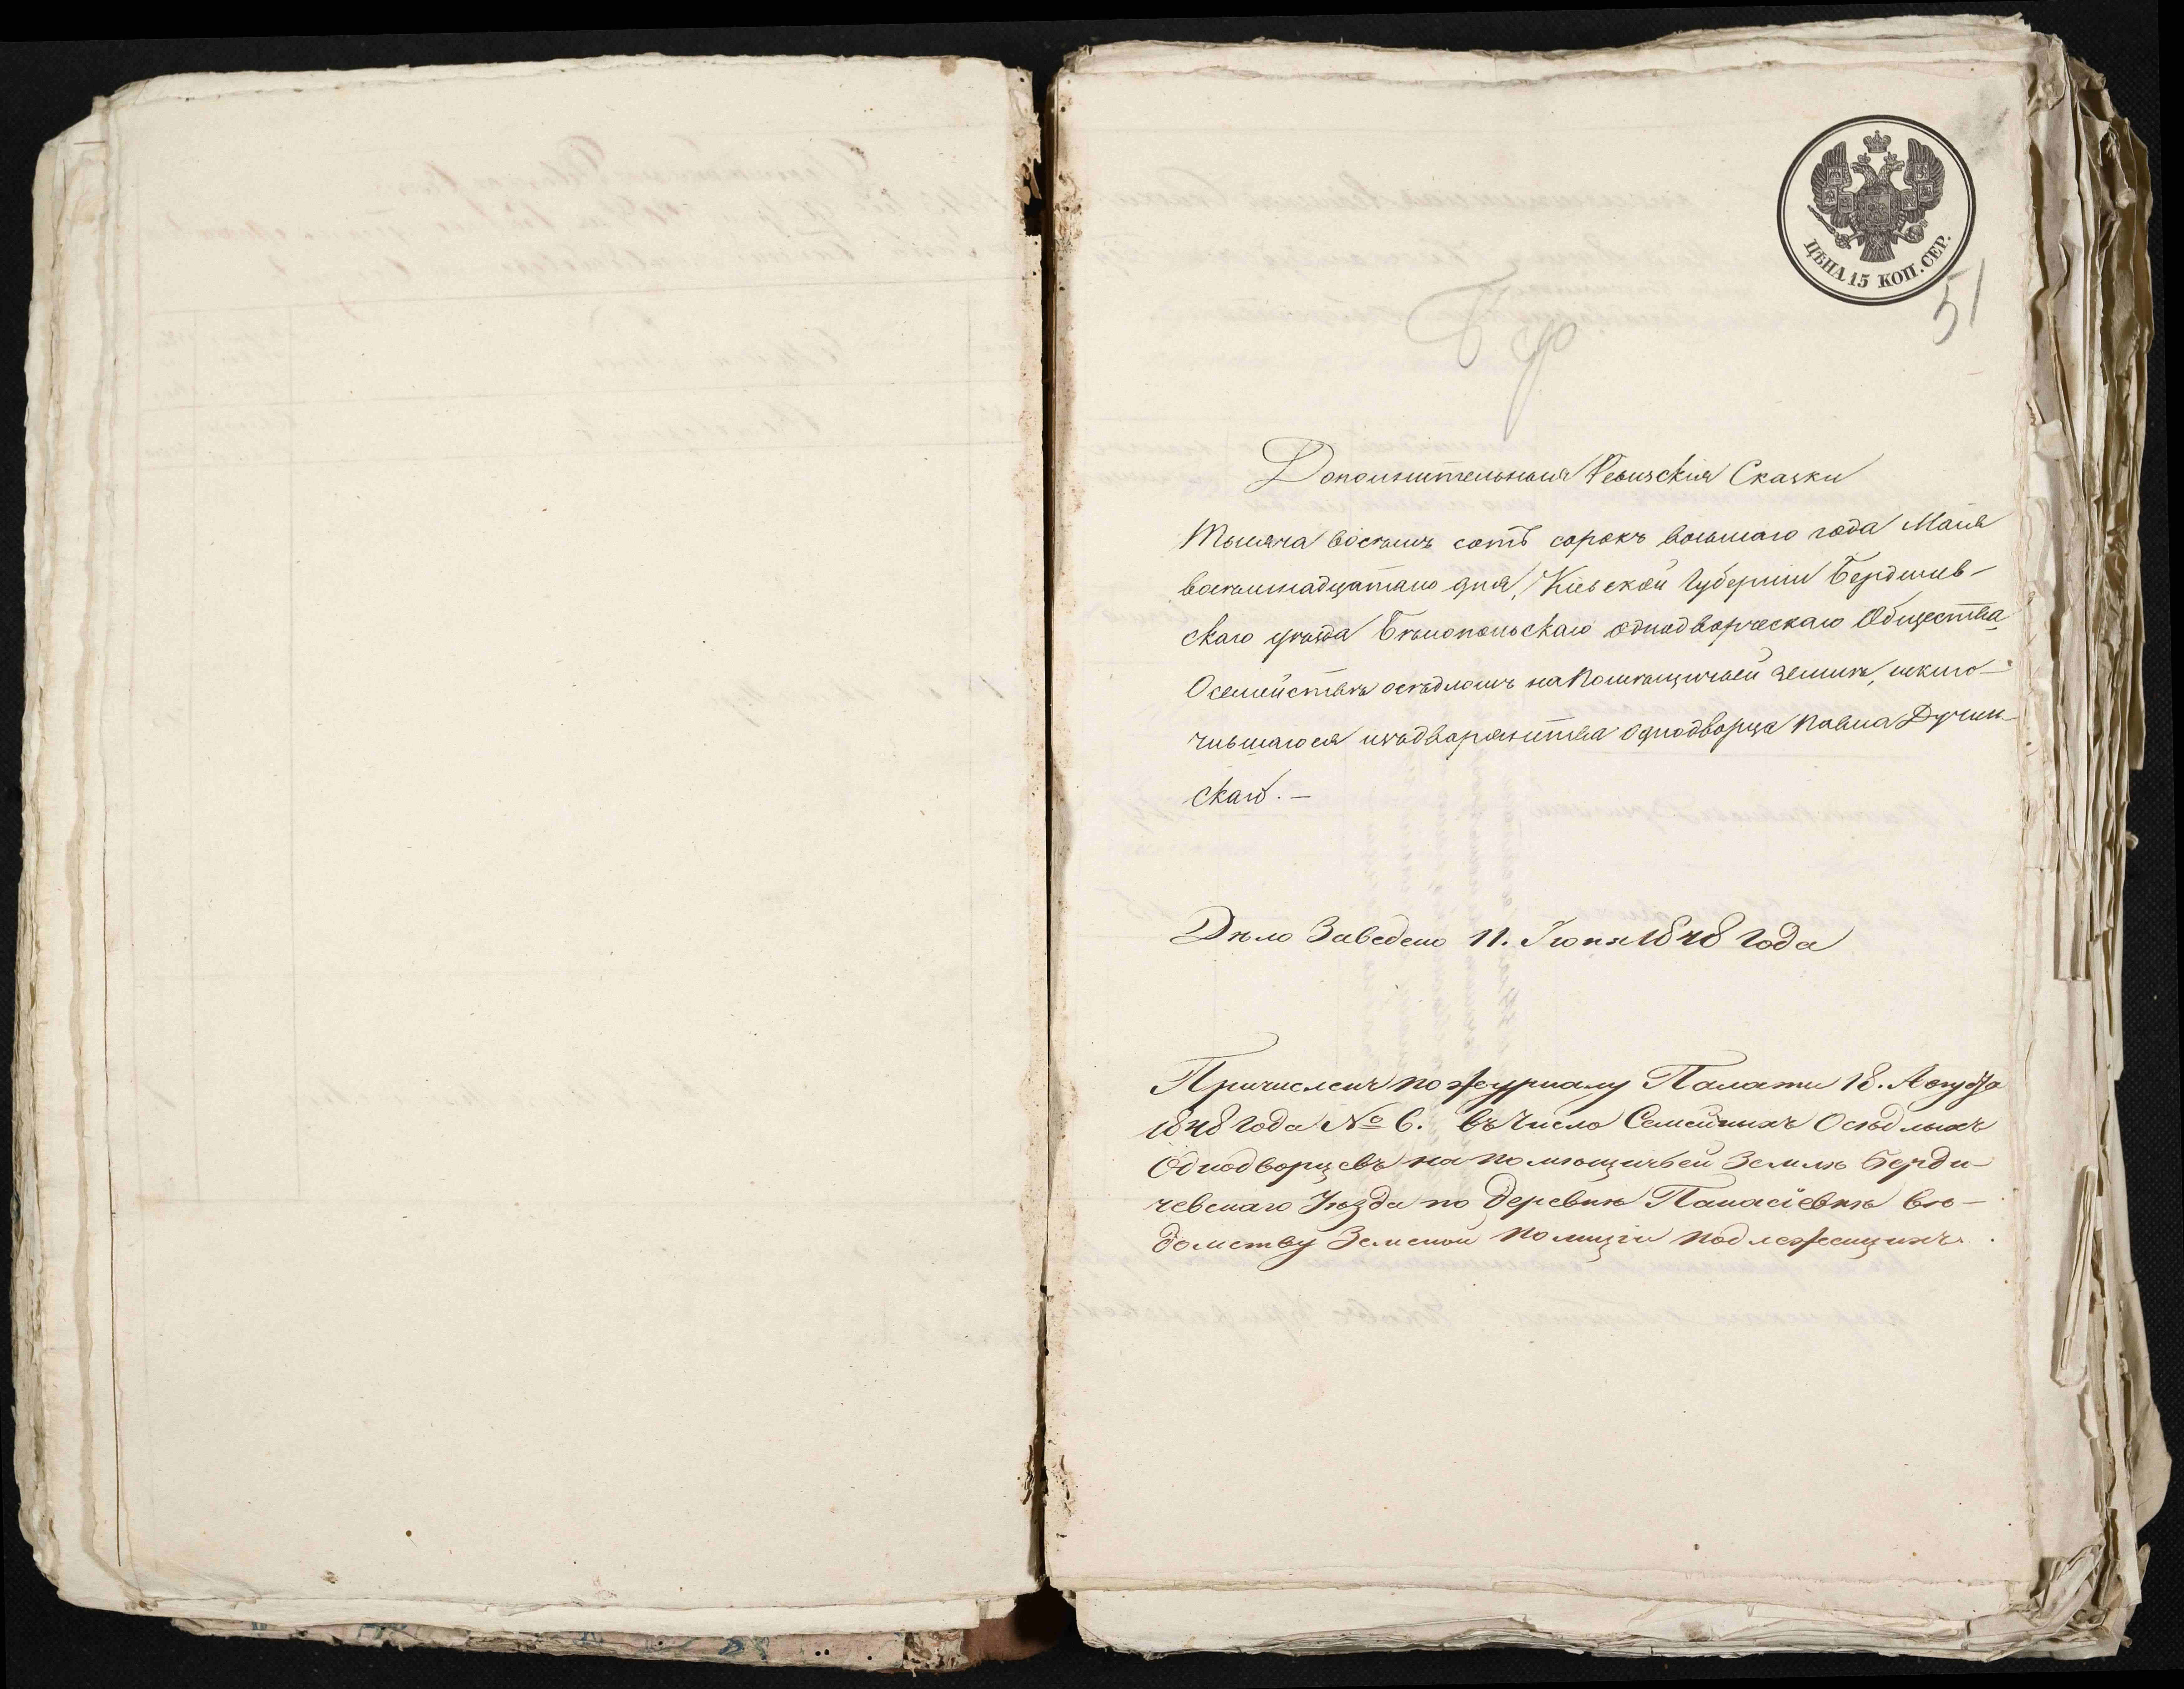 ЦѢНА 15 КОП. СЕР.
51
Дополнительныя Ревизскія Сказки
Тысяча восемь сотъ сорокъ восьмаго года Маія
восемнадцатаго дня, Кіевской Губерніи Бердичев-
скаго уѣзда Бѣлопольскаго однодворческаго Общества
О семействѣ осѣдломъ на помѣщичьей землѣ, исклю-
чившагося изъ дворянства однодворца Павла Дучин-
скаго. —
Дѣло Заведено 11. Іюня 1848 года
Причисленъ по журналу Палаты 18. Августа
1848 года № 6. въ Число Семейныхъ Осѣдлыхъ
Однодворцевъ на помѣщичьей Землѣ Берди-
чевскаго Уѣзда по Деревнѣ Панасіевкѣ вѣ-
домству Земской полиціи подлежащихъ.